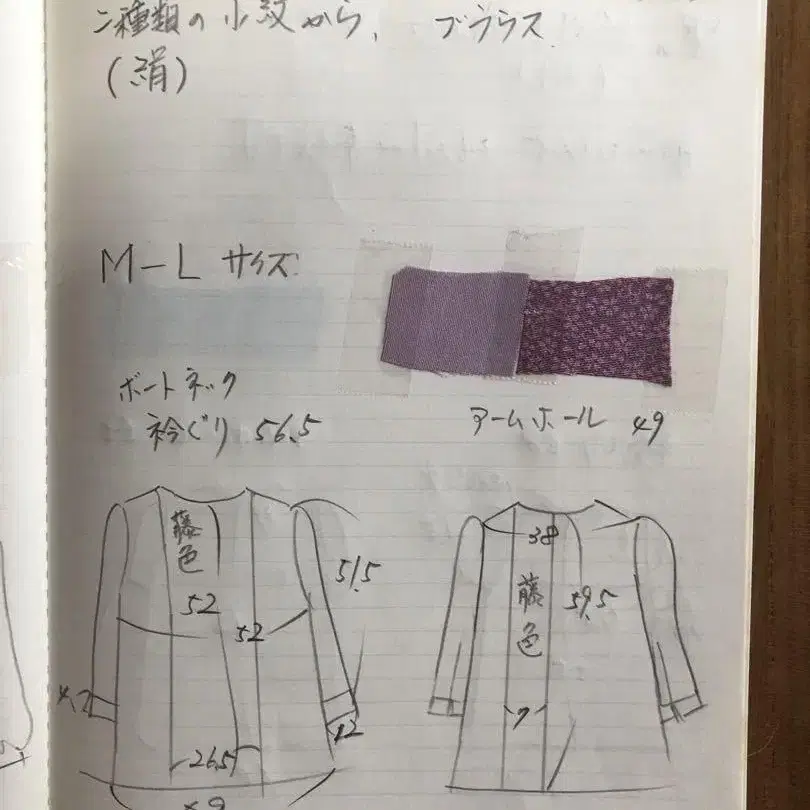 2種類の小紋から、ブラウス
(絹)
M-L サイズ
ボートネック
衿ぐり 56.5
アームホール 49
藤色
52
52
51.5
4.2
12
26.5
38
藤色
59.5
7